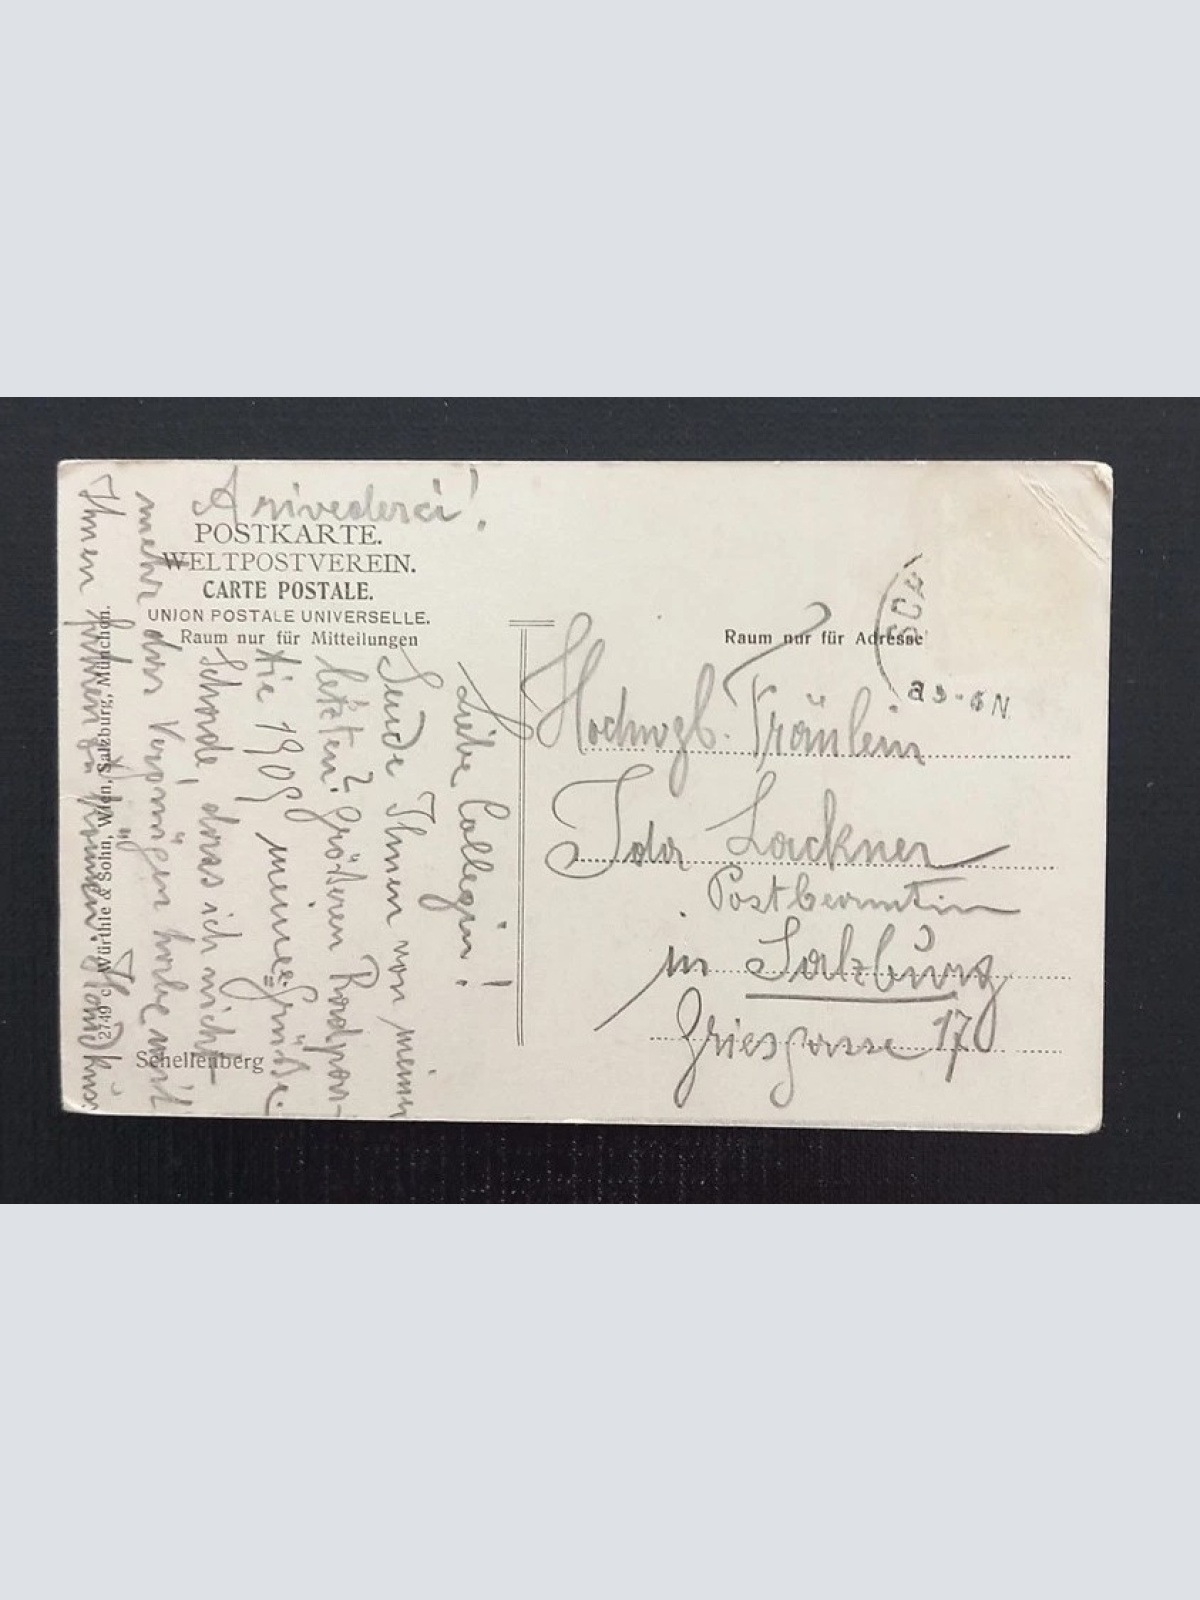 Arivederci!
POSTKARTE.
WELTPOSTVEREIN.
CARTE POSTALE.
UNION POSTALE UNIVERSELLE.
Raum nur für Mitteilungen
Liebe Collegin!
Sende Ihnen von meiner
letzten? größeren Radpar-
tie 1909 meine Grüße.
Schade, dass ich nicht
mehr das Vergnügen habe mit
Ihnen
2749 c Würthle & Sohn, Wien, Salzburg, München.
Schellenberg
Raum nur für Adresse
SCH
3-6N
Hochwgb. Fräulein
Ida Lackner
Postbeamtin
in Salzburg
Griesgasse 17